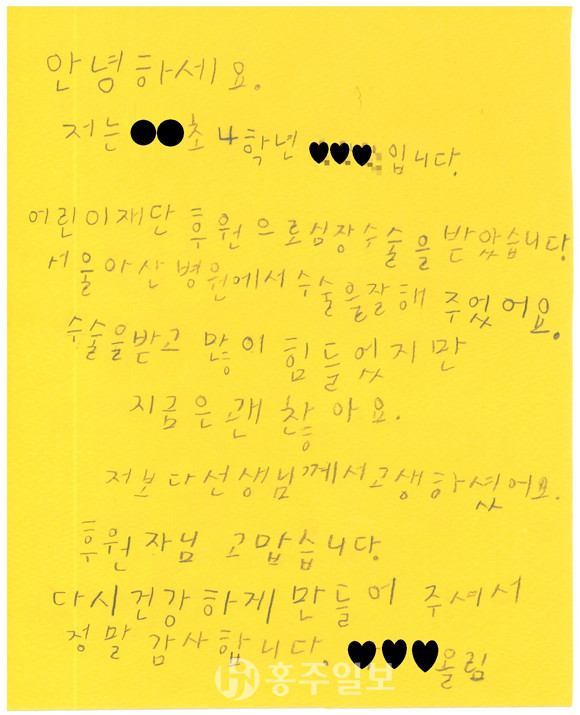 안녕하세요.
저는 ●●초 4학년 ♥♥♥입니다.
어린이재단 후원으로심장수술을 받았습니다
서울아산병원에서 수술을잘해 주었어요.
수술을받고 많이 힘들었지만
지금은괜찮아요.
저보다선생님께서고생하셨어요.
후원자님 고맙습니다
다시건강하게 만들어 주셔서
정말 감사합니다. ♥♥♥올림
홍주일보